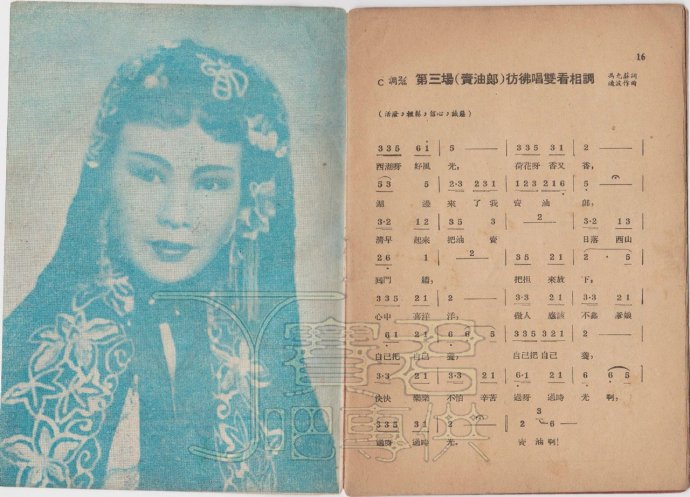 16
C調 第三場(賣油郞)彷彿唱雙看相調
(活潑,輕鬆,信心,誠懇)
3 3 5 6 i | 5 — | 3 5 3 1 | 2 —
西湖呀 好風 光, 荷花呀 香又 香,
5 3 5 | 2·3 2 3 1 | 1 2 3 2 1 6 | 5 —
湖 邊 來 了 我 賣 油 郞,
3·2 1 2 | 3 5 3 | 2 — | 3·2 1 3
淸早 起來 把油 賣 日落 西山
2 6 1 | 2 — | 3 5 2 1 | 2 · 5
回門 牆, 把担 來放 下,
3 3 5 2 1 | 2 — | 3·3 2 1 | 3·3 2 1
心中 喜洋 洋, 做人 應該 不靠 爹娘
6 1 2 1 | 6 6 5 | 3 3 5 3 2 1 | 5 —
自己把 自己 養, 自己把 自己 養,
3·3 2 1 | 3·3 2 1 | 6·1 2 1 | 6 6 5
快快 樂樂 不怕 辛苦 過呀 過時 光 啊,
3 3 5 3 1 | 2 — | 2 · 6 | 5 —
過呀 過時 光。 賣 油 啊!